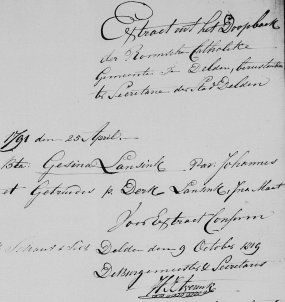 Extract uit het Doopboek
der Roomsch Catholike
Gemeente te Delden, berustende
ter Secretarie der Stad Delden
1791 den 23 April.
Bta: Gesina Lansink Par: Johannes
et Getrudes p: Derk Lansink, Jna Maat
Voor Extract Conform
Delden den 9 October 1819
De Burgemeester & Secretaris